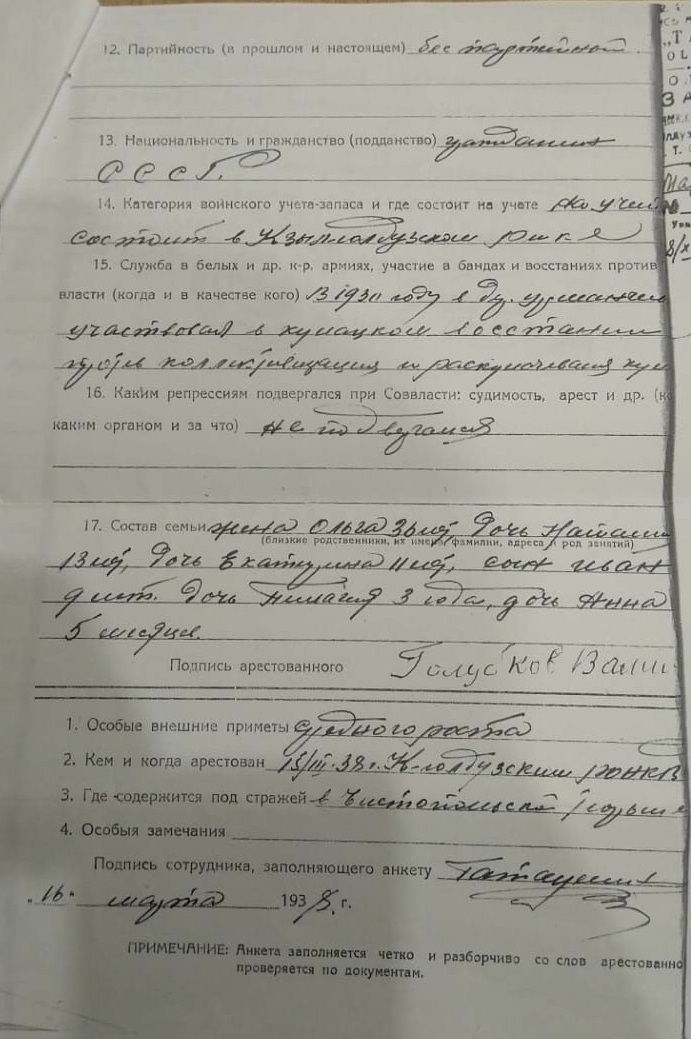 12. Партийность (в прошлом и настоящем) беспартийной
13. Национальность и гражданство (подданство) гражданин
СССР.
14. Категория воинского учета-запаса и где состоит на учете на учете
состоит в Кзыларолдузском
15. Служба в белых и др. к-р. армиях, участие в бандах и восстаниях против
власти (когда и в качестве кого) В 1930 году в
участвовал в кулацком восстании
против коллективизации и раскулачивания
16. Каким репрессиям подвергался при Соввласти: судимость, арест и др. (к
каким органом и за что) не подвергался
17. Состав семьи жена Ольга дочь
(близкие родственники, их имена, фамилии, адреса и род занятий)
13 лет, дочь Екатерина 11 лет, сын иван
9 лет. дочь 3 года, дочь Анна
5 месяцев.
Подпись арестованного Голубков
1. Особые внешние приметы среднего роста
2. Кем и когда арестован 15/III-38 г.
3. Где содержится под стражей в Чистопольской тюрьме
4. Особыя замечания
Подпись сотрудника, заполняющего анкету
„16" марта 1938 г.
ПРИМЕЧАНИЕ: Анкета заполняется четко и разборчиво со слов арестованно
проверяется по документам.